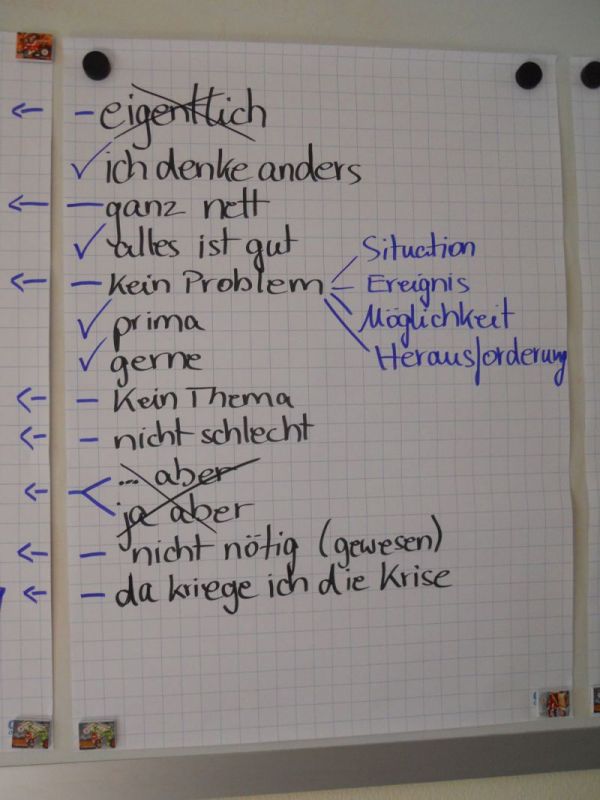 ← – eigentlich
✓ ich denke anders
← – ganz nett
✓ alles ist gut
← – Kein Problem
Situation
Ereignis
Möglichkeit
Herausforderung
✓ prima
✓ gerne
← – Kein Thema
← – nicht schlecht
... aber
ja aber
← – nicht nötig (gewesen)
← – da kriege ich die Krise